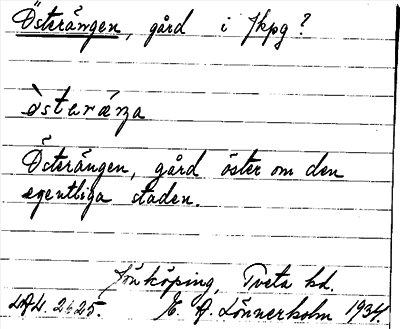 Österängen, gård i Jkpg?
òsteræŋa
Österängen, gård öster om den
egentliga staden.
Jönköping, Tveta hd.
LAL. 2625. E. A. Lönnerholm 1934.